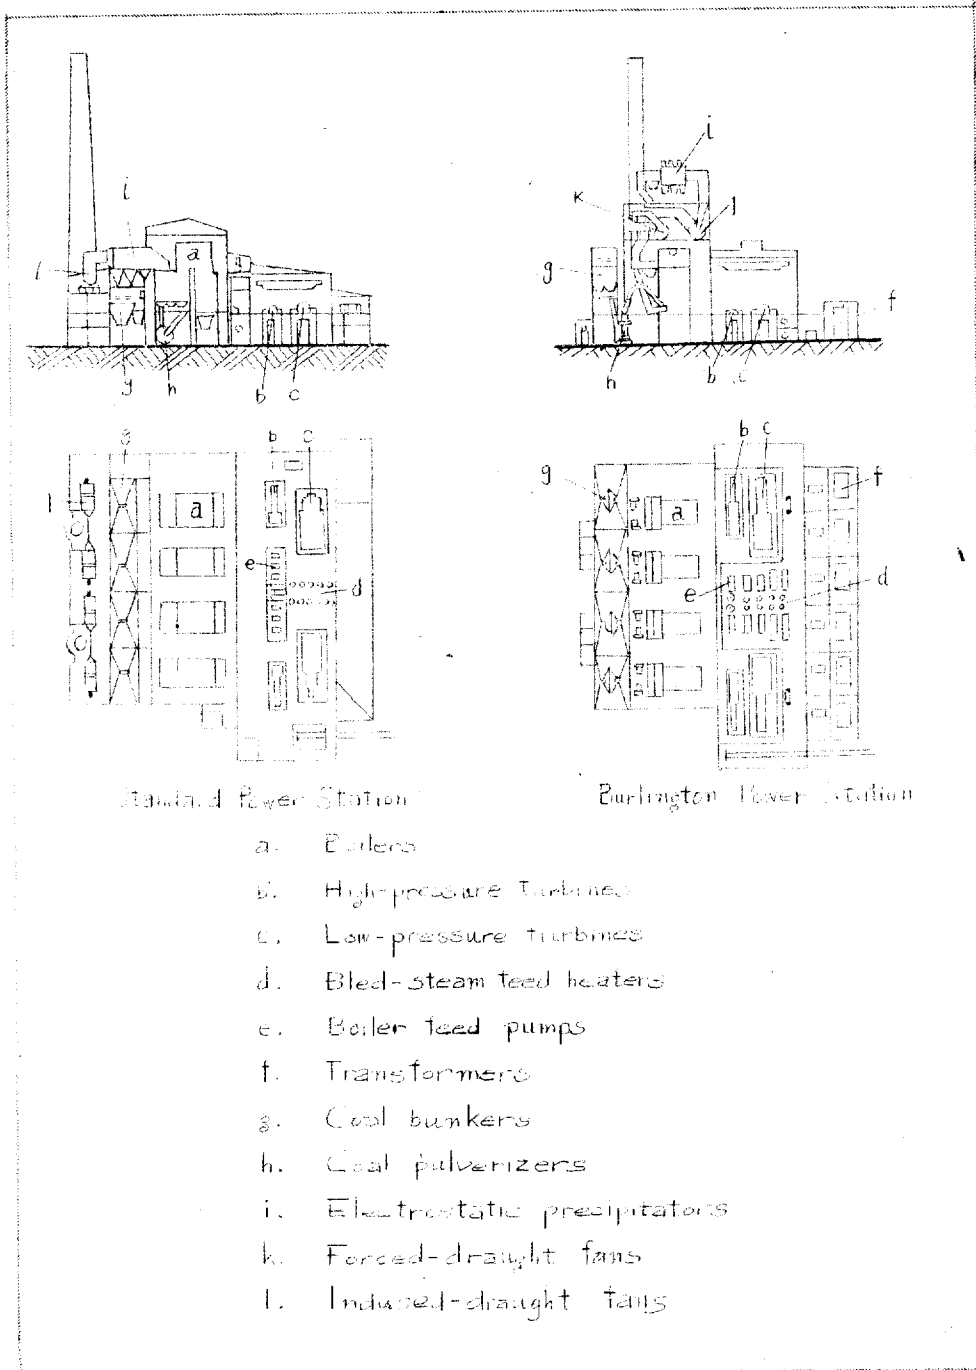 i
l
a
g
h
b
c
i
k
l
g
f
h
b
c
g
b
c
l
a
e
d
b
c
g
a
f
e
d
Standard Power Station
Burlington Power Station
a. Boilers
b. High-pressure turbines
c. Low-pressure turbines
d. Bled-steam feed heaters
e. Boiler feed pumps
f. Transformers
g. Coal bunkers
h. Coal pulverizers
i. Electrostatic precipitators
k. Forced-draught fans
l. Induced-draught fans